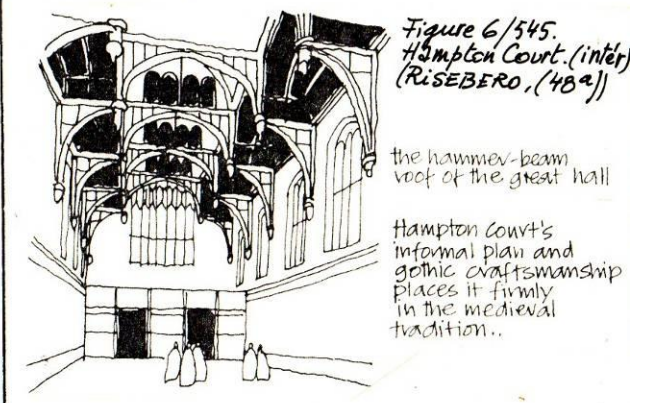 Figure 6/545.
Hampton Court. (intér)
(RiSEBERO, (48a))
the hammer-beam
roof of the great hall
Hampton Court's
informal plan and
gothic craftsmanship
places it firmly
in the medieval
tradition..